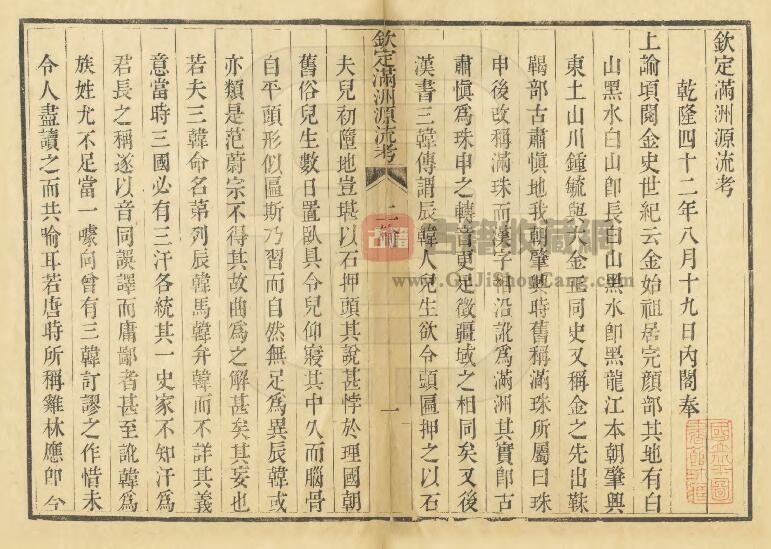 欽定滿洲源流考
乾隆四十二年八月十九日內閣奉
上諭頃閱金史世紀云金始祖居完顏部其地有白
山黑水白山即長白山黑水即黑龍江本朝肇興
東土山川鍾毓與大金正同史又稱金之先出靺
鞨部古肅慎地我朝肇興時舊稱滿珠所屬曰珠
申後改稱滿珠而漢字相沿訛為滿洲其實即古
肅慎為珠申之轉音更足徵疆域之相同矣又後
漢書三韓傳謂辰韓人兒生欲令頭匾押之以石
欽定滿洲源流考
諭
一
夫兒初墮地豈堪以石押頭其說甚悖於理國朝
舊俗兒生數日置臥具令兒仰寢其中久而腦骨
自平頭形似匾斯乃習而自然無足為異辰韓或
亦類是范蔚宗不得其故曲為之解甚矣其妄也
若夫三韓命名第列辰韓馬韓弁韓而不詳其義
意當時三國必有三汗各統其一史家不知汗為
君長之稱遂以音同誤譯而庸鄙者甚至訛韓為
族姓尤不足當一噱向曾有三韓訂謬之作惜未
令人盡讀之而共喻耳若唐時所稱雞林應即今
古籍
古籍收藏網
www.GuJiShouCang.com